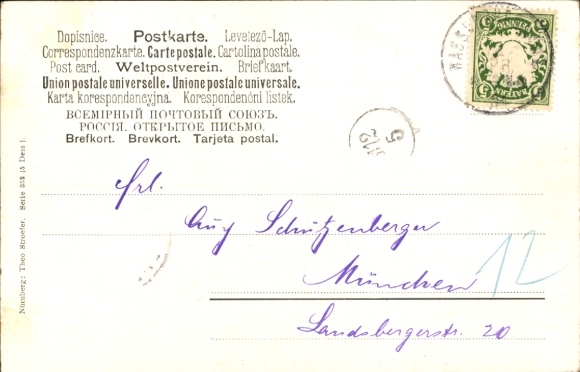 Dopisnice. Postkarte. Levelező-Lap.
Correspondenzkarte. Carte postale. Cartolina postale.
Post card. Weltpostverein. Briefkaart.
Union postale universelle. Unione postale universale.
Karta korespondencyjna. Korespondenčni listek.
ВСЕМІРНЫЙ ПОЧТОВЫЙ СОЮЗЪ.
РОССІЯ. ОТКРЫТОЕ ПИСЬМО.
Brefkort. Brevkort. Tarjeta postal.
PFENNIG
BAYERN
5 5
Nürnberg: Theo Stroefer. Serie 352 (5 Dess).
Frl.
Aug Schützenberger
München
12
Landsbergerstr. 20